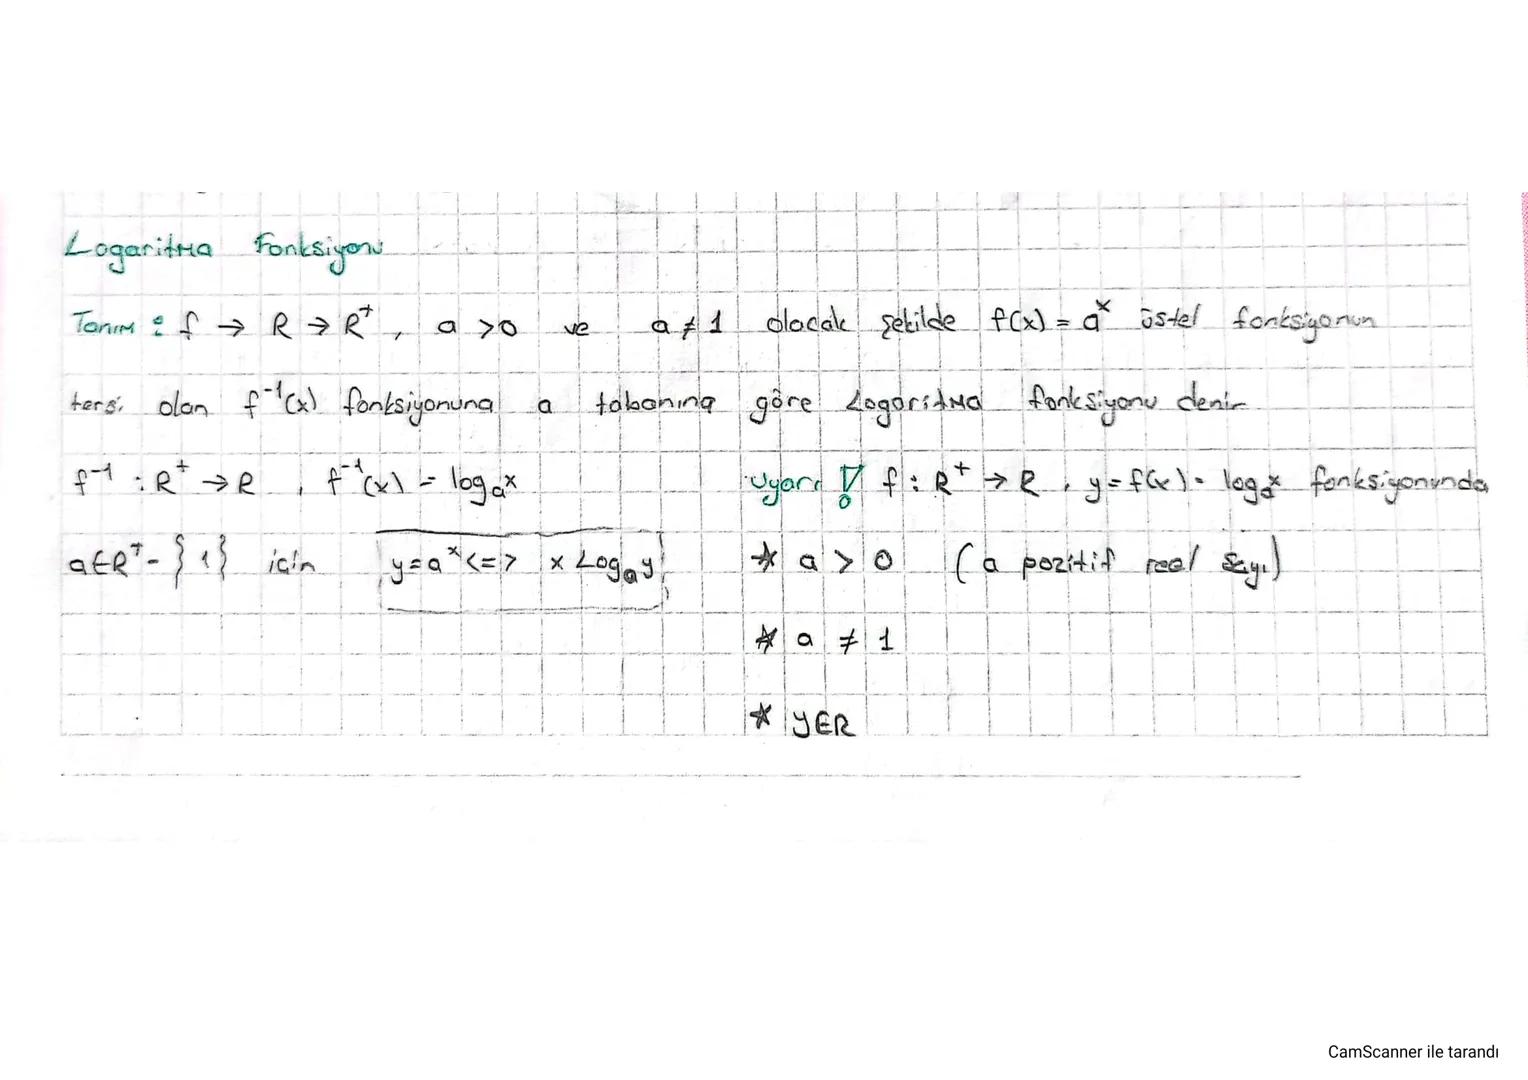 Logaritma Fonksiyonu
Tanım : f → R → R⁺ , a > 0 ve a ≠ 1 olacak şekilde f(x) = aˣ üstel fonksiyonun
tersi olan f⁻¹(x) fonksiyonuna a tabanına göre Logaritma fonksiyonu denir
f⁻¹ : R⁺ → R , f⁻¹(x) = logₐx
a∈R⁺- } 1 } için y = aˣ <=> x Logₐy
Uyarı ! f : R⁺ → R , y = f(x) = logₐx fonksiyonunda
* a > 0 ( a pozitif reel sayı)
* a ≠ 1
* y∈R
CamScanner ile tarandı